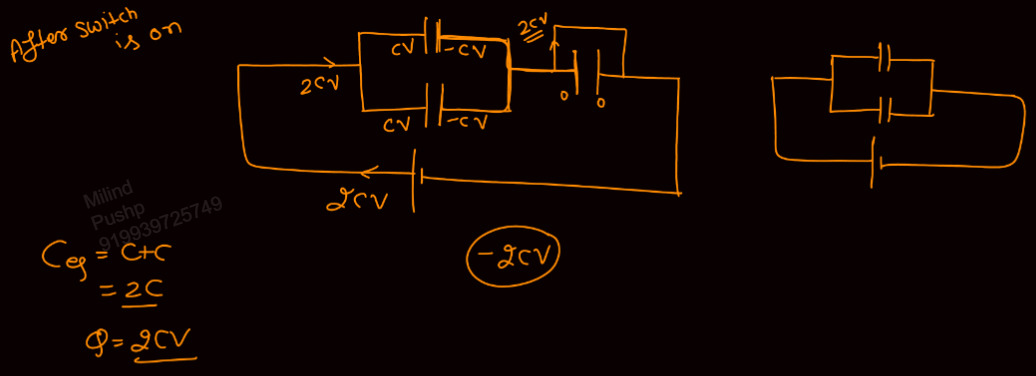 After switch
is on
2CV
CV
-CV
2CV
CV
-CV
0
0
2CV
-2CV
Milind
Pushp
919939725749
Ceq = C+C
= 2C
Q = 2CV